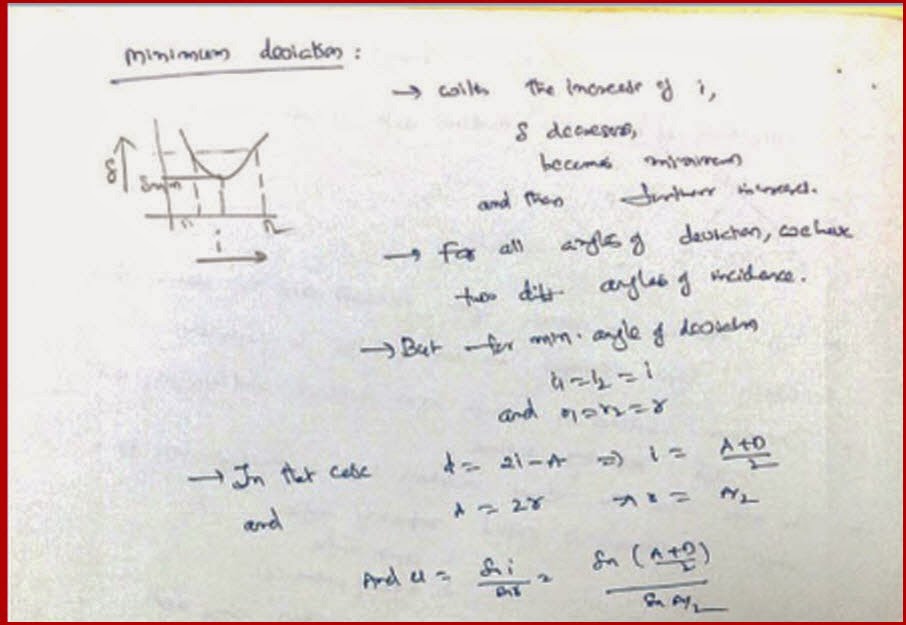 minimum deviation :
→ with the increase of i,
δ decreases,
becomes minimum
and then further increases.
δ
δmin
i₁
i₂
i
→ For all angles of deviation, we have
two diff angles of incidence.
→ But for min. angle of deviation
i₁ = i₂ = i
and r₁ = r₂ = r
→ In that case d = 2i - A ⇒ i = (A+D)/2
and A = 2r ⇒ r = A/2
And u = Sin i / Sin r = Sin (A+D)/2 / Sin A/2